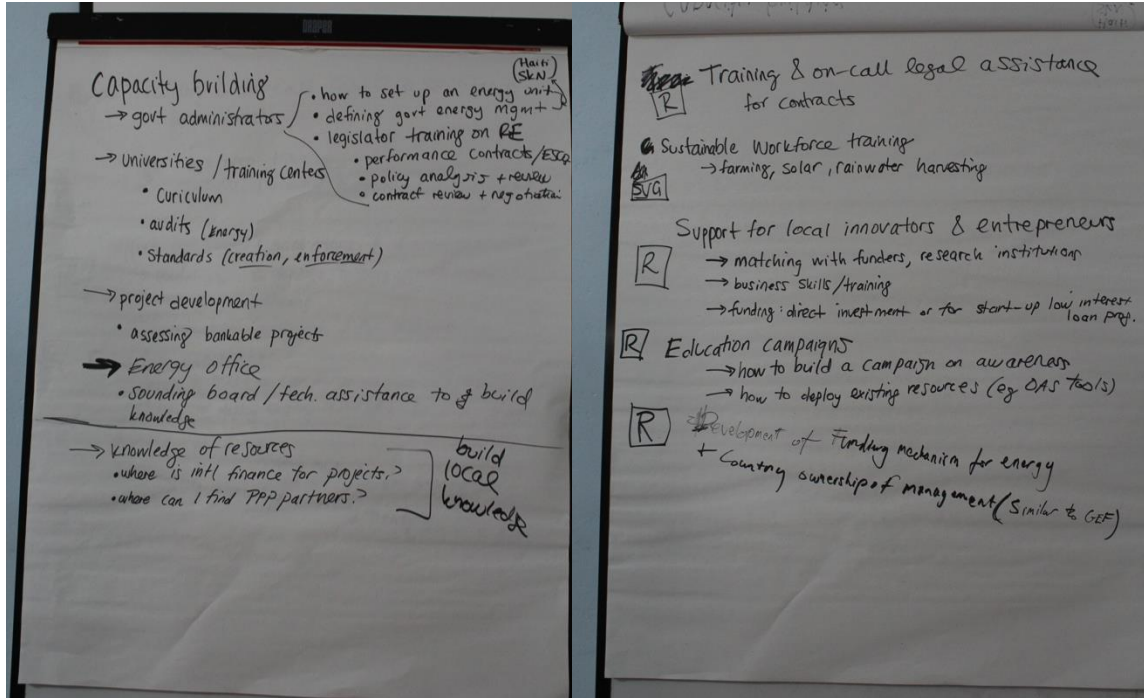 Capacity building
(Haiti
SKN)
→ govt administrators
• how to set up an energy unit
• defining govt energy mgmt
• legislator training on RE
• performance contracts/ESCO
• policy analysis + review
• contract review + negotiation
→ universities / training centers
• Curiculum
• audits (energy)
• Standards (creation, enforcement)
→ project development
• assessing bankable projects
→ Energy office
• sounding board / tech. assistance to build
knowledge
→ knowledge of resources
• where is intl finance for projects?
• where can I find PPP partners?
build
local
knowledge
Training & on-call legal assistance
R
for contracts
Sustainable workforce training
→ farming, solar, rainwater harvesting
SVG
Support for local innovators & entrepreneurs
R
→ matching with funders, research institutions
→ business skills/training
→ funding: direct investment or for start-up low interest
loan prog.
R Education campaigns
→ how to build a campaign on awareness
→ how to deploy existing resources (eg OAS tools)
R
Development of Funding mechanism for energy
+ Country ownership of management (Similar to GEF)